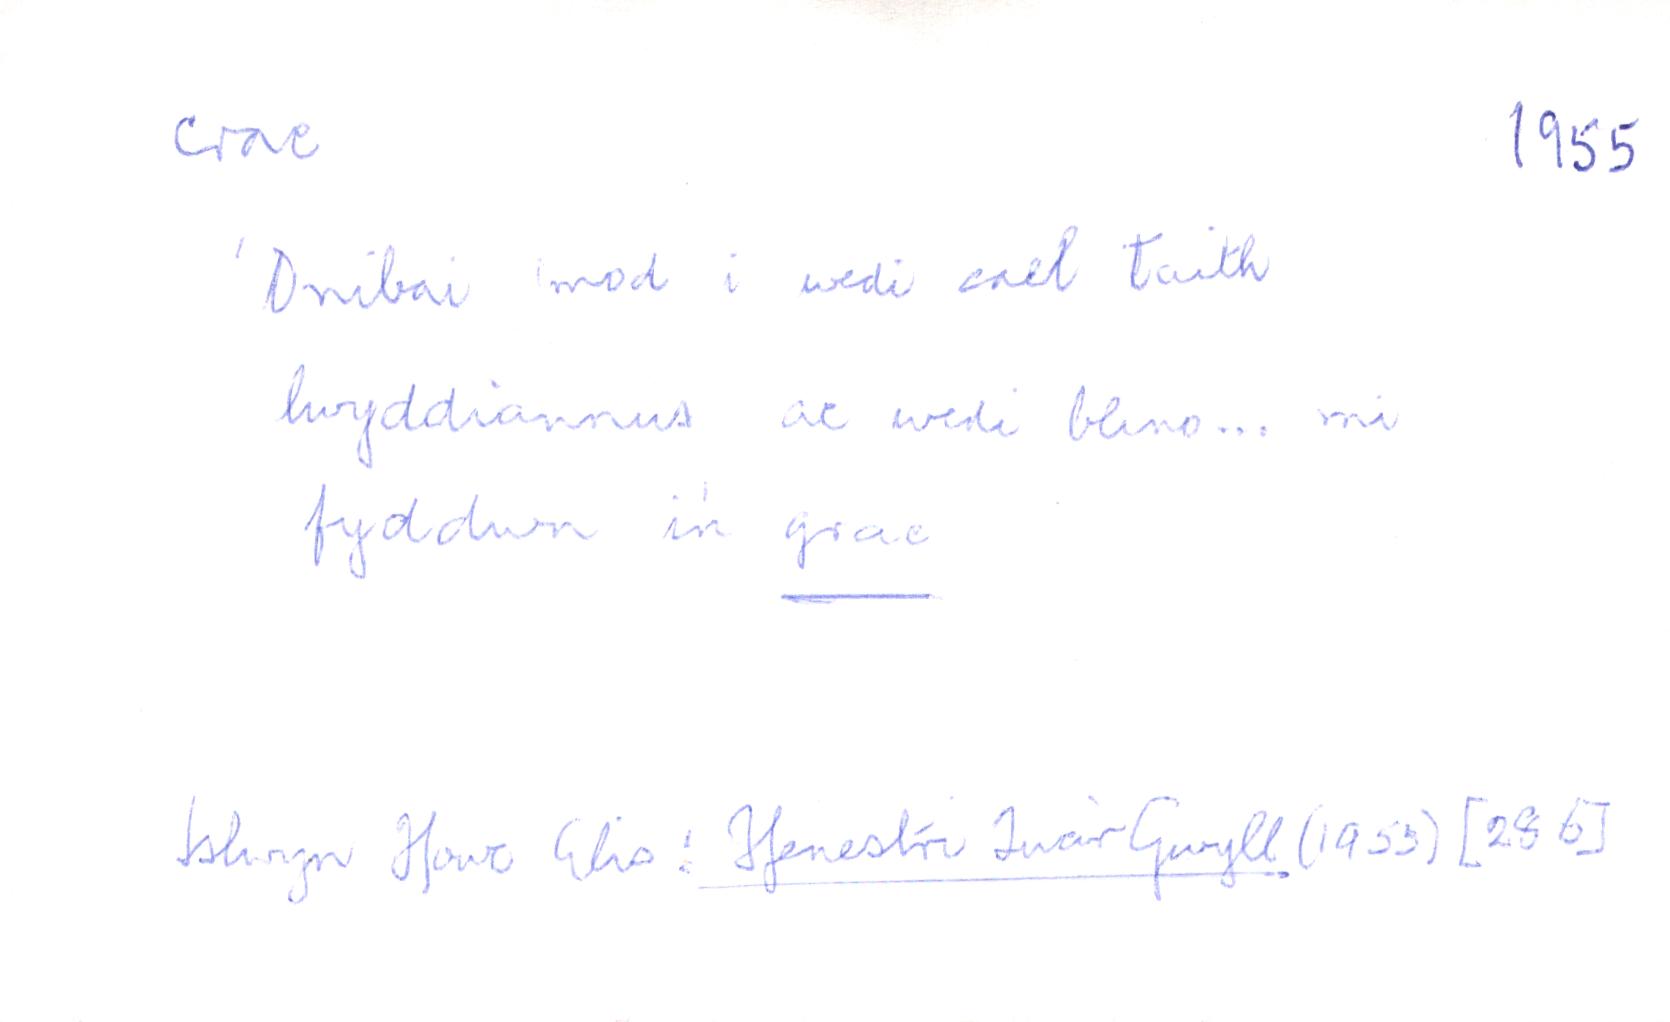 crac 1955
'Dnibai 'mod i wedi cael taith
lwyddiannus ac wedi blino... mi
fyddwn i'n grac
Islwyn Ffowc Elis: Ffenestri Tua'r Gwyll (1955) [286]